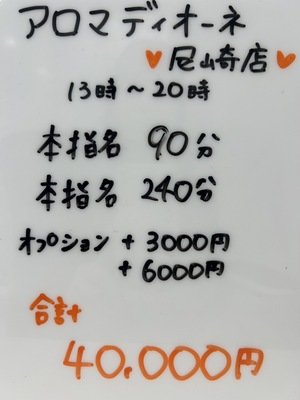 アロマディオーネ
♥尼崎店♥
13時～20時
本指名 90分
本指名 240分
オプション + 3000円
+ 6000円
合計
40,000円